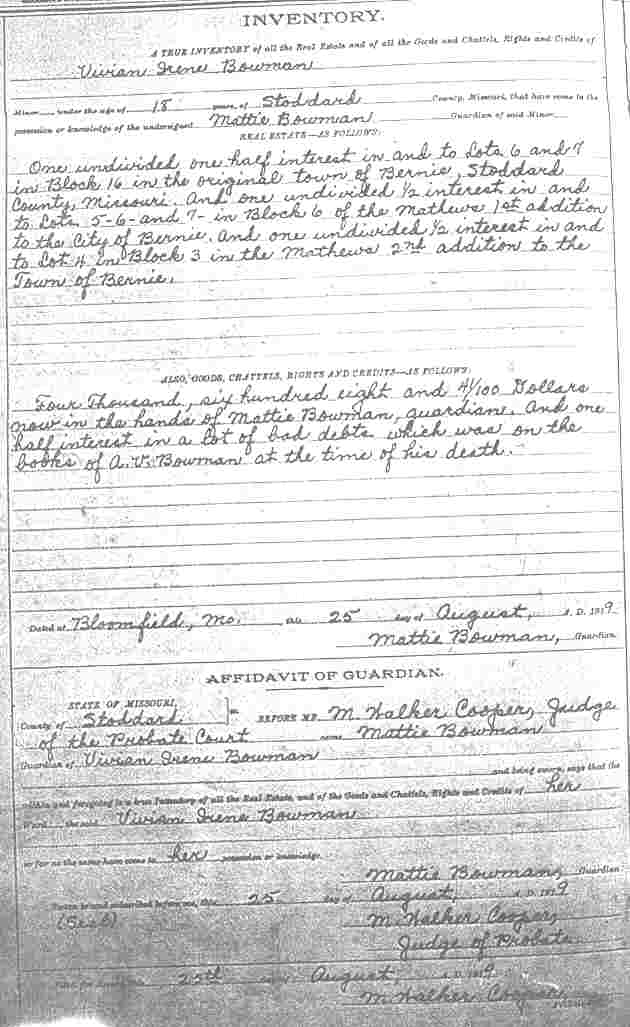 INVENTORY.
A TRUE INVENTORY of all the Real Estate and of all the Goods and Chattels, Rights and Credits of
Vivian Irene Bowman
Minor under the age of 18 years, of Stoddard County, Missouri, that have come to the
possession or knowledge of the undersigned Mattie Bowman Guardian of said Minor
REAL ESTATE—AS FOLLOWS:
One undivided one half interest in and to Lots 6 and 7
in Block 16 in the original town of Bernie, Stoddard
County, Missouri. And one undivided 1/2 interest in and
to Lots 5-6-and 7- in Block 6 of the Mathews 1st addition
to the City of Bernie. And one undivided 1/2 interest in and
to Lot 4 in Block 3 in the Mathews 2nd addition to the
Town of Bernie.
ALSO, GOODS, CHATTELS, RIGHTS AND CREDITS—AS FOLLOWS:
Four Thousand, six hundred eight and 41/100 Dollars
now in the hands of Mattie Bowman, guardian. And one
half interest in a lot of bad debts which was on the
books of A. V. Bowman at the time of his death.
Dated at Bloomfield, Mo. 25 day of August, A. D. 1919
Mattie Bowman, Guardian
AFFIDAVIT OF GUARDIAN.
STATE OF MISSOURI,
County of Stoddard BEFORE ME, M. Walker Cooper, Judge
of the Probate Court Mattie Bowman
Guardian of Vivian Irene Bowman
and being sworn, says that the
within and foregoing is a true Inventory of all the Real Estate, and of the Goods and Chattels, Rights and Credits of her
Ward the said Vivian Irene Bowman
so far as the same have come to her possession or knowledge.
Mattie Bowman, Guardian
Sworn to and subscribed before me, this 25 day of August, A. D. 1919
(Seal) M. Walker Cooper,
Judge of Probate
25th August, A. D. 1919
M. Walker Cooper